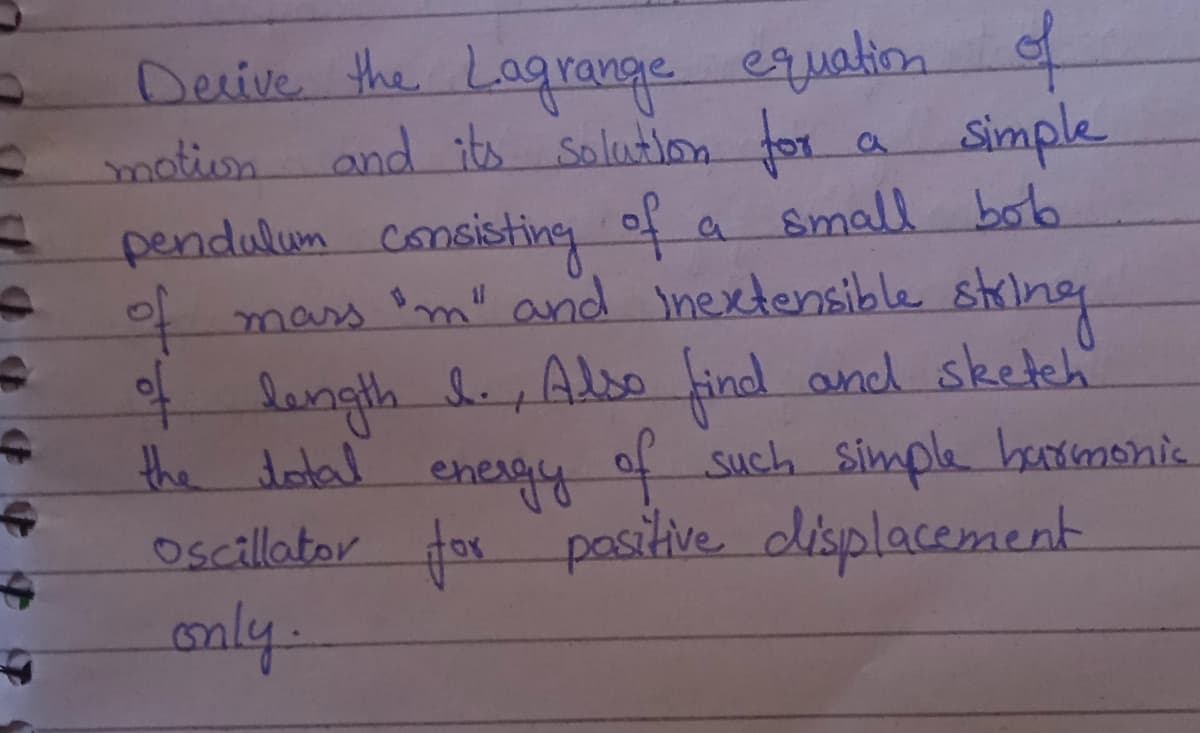 Derive the Lagrange equation of
motion and its solution for a simple
pendulum consisting of a small bob
of mass "m" and inextensible string
of length l., Also find and sketch
the total energy of such simple harmonic
oscillator for positive displacement
only.